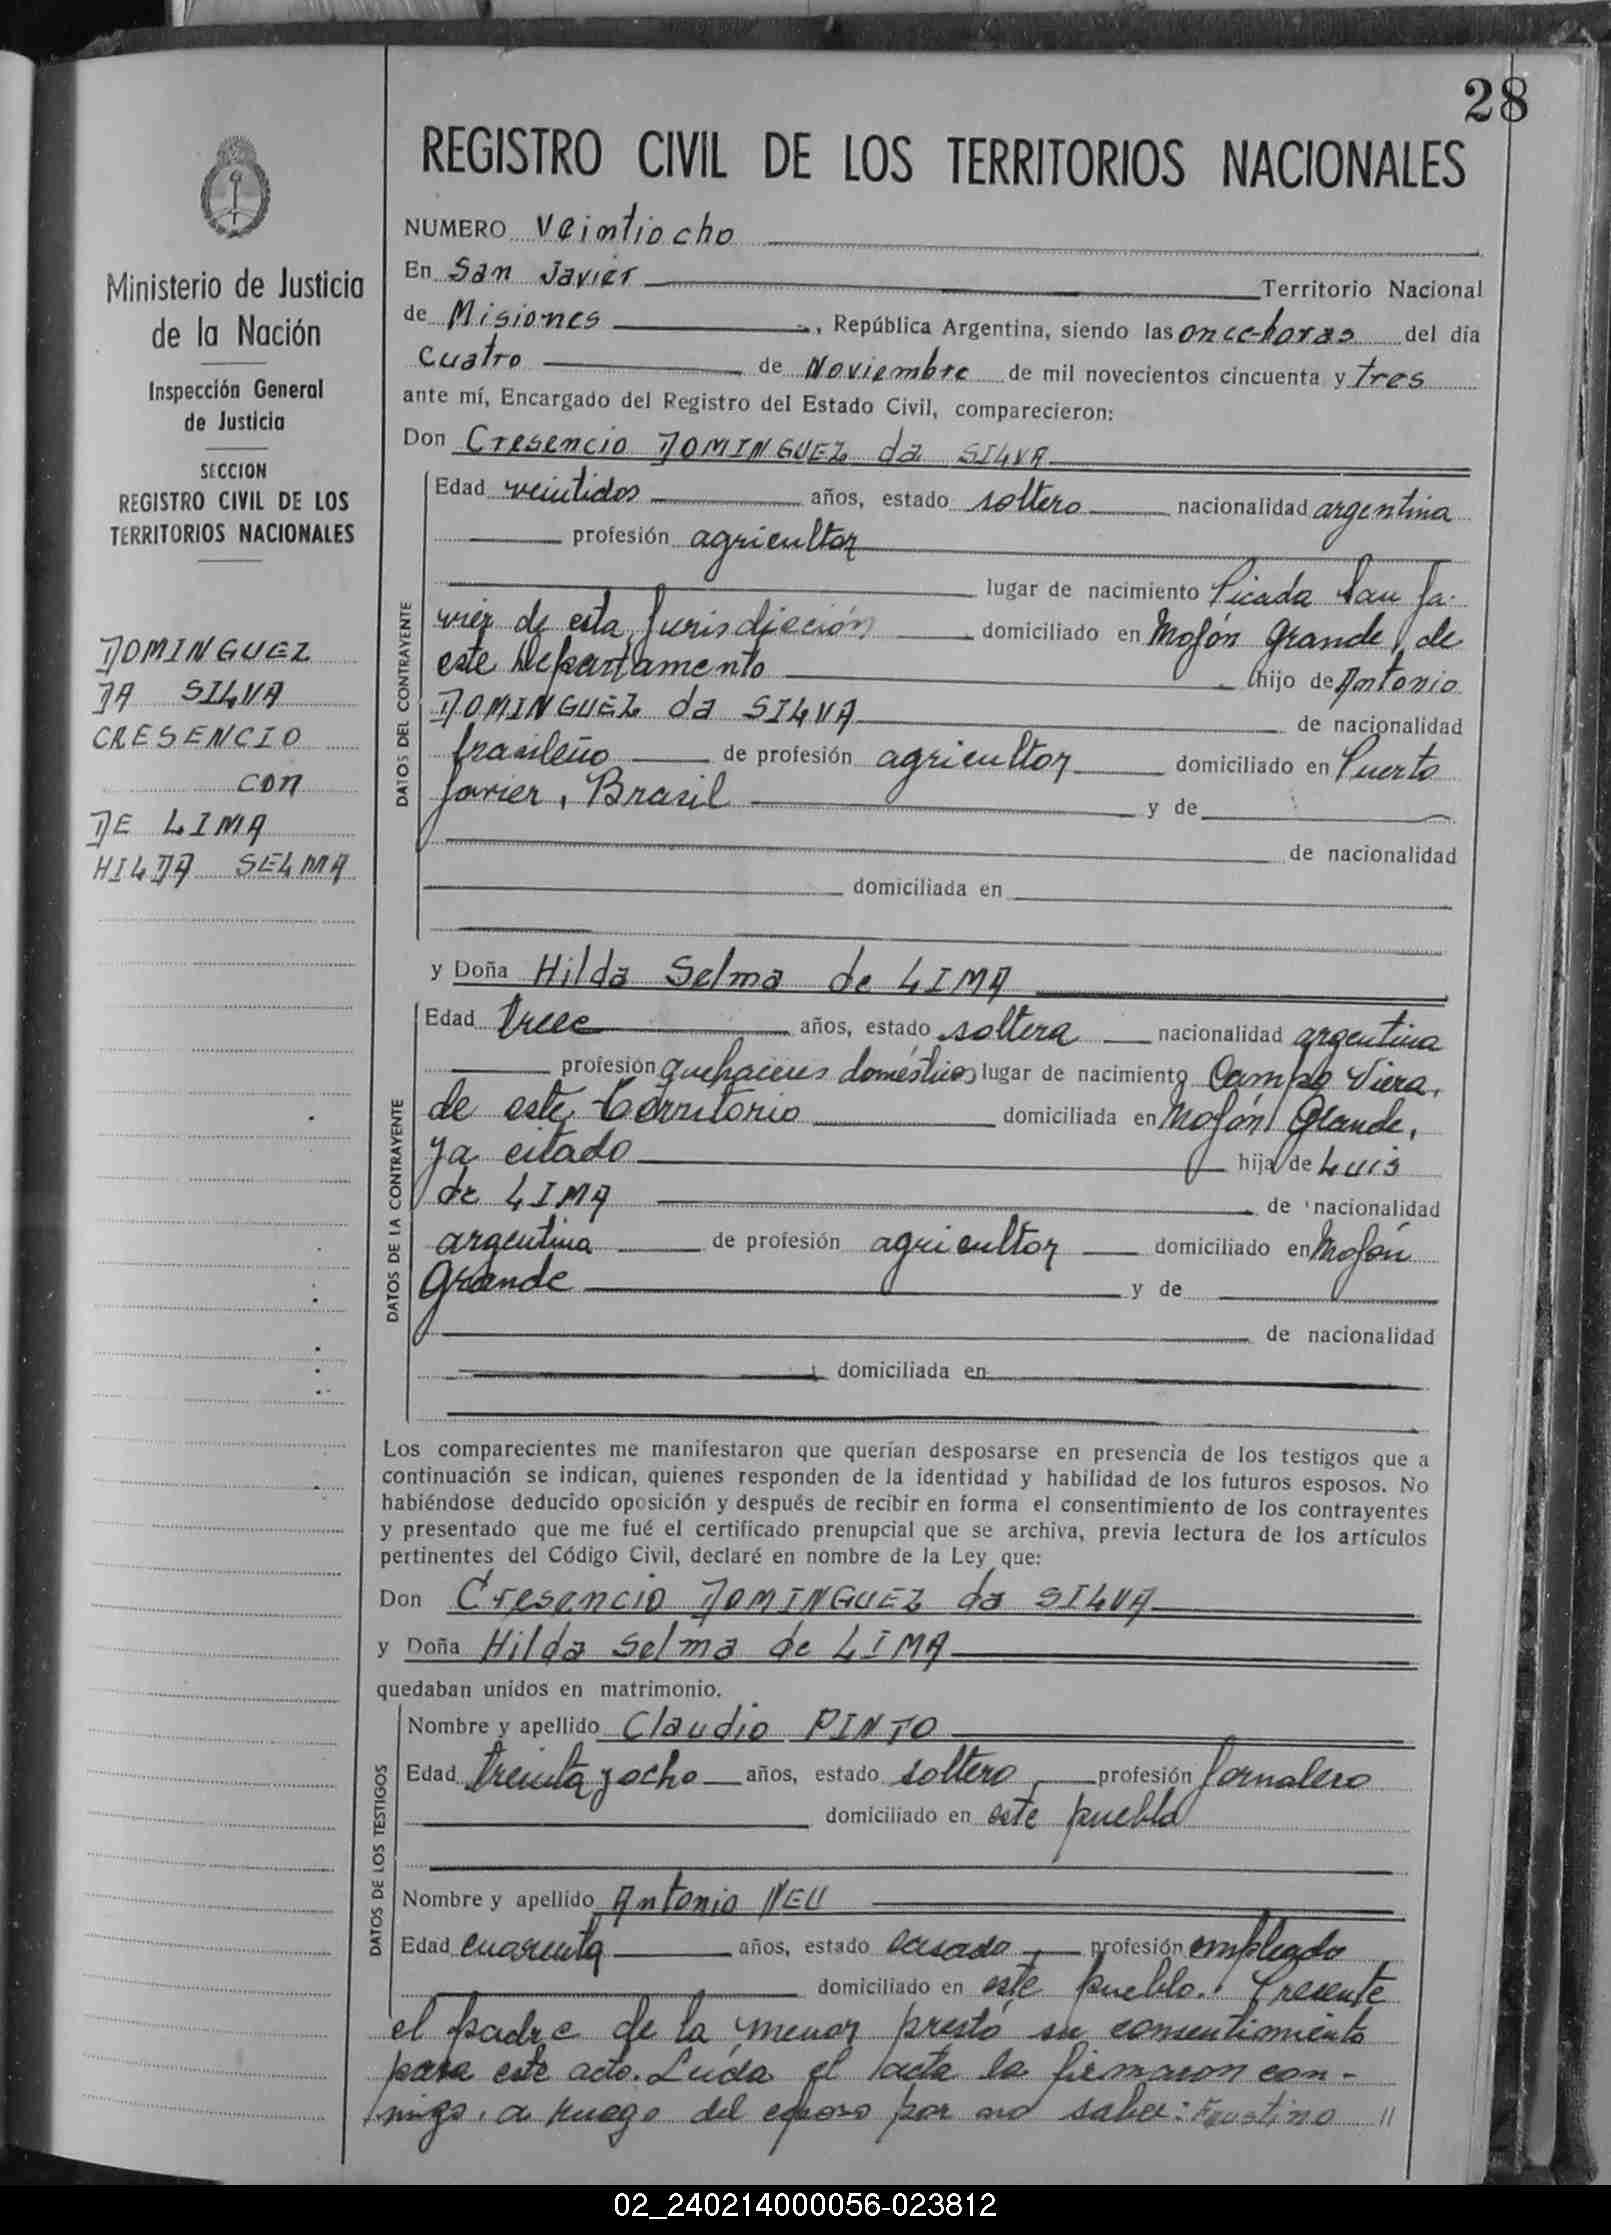 28
REGISTRO CIVIL DE LOS TERRITORIOS NACIONALES
Ministerio de Justicia
de la Nación
Inspección General
de Justicia
SECCION
REGISTRO CIVIL DE LOS
TERRITORIOS NACIONALES
DOMINGUEZ
DA SILVA
CRESENCIO
con
DE LIMA
HILDA SELMA
NUMERO Veintiocho
En San Javier Territorio Nacional
de Misiones, República Argentina, siendo las once horas del día
Cuatro de Noviembre de mil novecientos cincuenta y tres
ante mí, Encargado del Registro del Estado Civil, comparecieron:
Don Cresencio DOMINGUEZ da SILVA
DATOS DEL CONTRAYENTE
Edad veintidos años, estado soltero nacionalidad argentina
profesión agricultor
lugar de nacimiento Picada San Ja-
vier de esta Jurisdicción domiciliado en Mojón grande, de
este Departamento hijo de Antonio
DOMINGUEZ da SILVA de nacionalidad
brasileño de profesión agricultor domiciliado en Puerto
Javier, Brasil y de
de nacionalidad
domiciliada en
y Doña Hilda Selma de LIMA
DATOS DE LA CONTRAYENTE
Edad trece años, estado soltera nacionalidad argentina
profesión quehaceres domésticos lugar de nacimiento Campo Viera,
de este Territorio domiciliada en Mojón Grande,
ya citado hija de Luis
de LIMA de nacionalidad
argentina de profesión agricultor domiciliado en Mojón
Grande y de
de nacionalidad
domiciliada en
Los comparecientes me manifestaron que querían desposarse en presencia de los testigos que a
continuación se indican, quienes responden de la identidad y habilidad de los futuros esposos. No
habiéndose deducido oposición y después de recibir en forma el consentimiento de los contrayentes
y presentado que me fué el certificado prenupcial que se archiva, previa lectura de los artículos
pertinentes del Código Civil, declaré en nombre de la Ley que:
Don Cresencio DOMINGUEZ da SILVA
y Doña Hilda Selma de LIMA
quedaban unidos en matrimonio.
DATOS DE LOS TESTIGOS
Nombre y apellido Claudio PINTO
Edad treinta y ocho años, estado soltero, profesión Jornalero
domiciliado en este pueblo
Nombre y apellido Antonio NEU
Edad cuarenta años, estado casado, profesión empleado
domiciliado en este pueblo. Presente
el padre de la menor prestó su consentimiento
para este acto. Leída el acta la firmaron con-
migo, a ruego del esposo por no saber: Faustino //
02_240214000056-023812